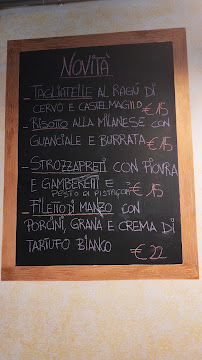 NOVITÀ
- TAGLIATELLE AL RAGÙ DI
CERVO E CASTELMAGNO €15
- RISOTTO ALLA MILANESE CON
GUANCIALE E BURRATA €15
- STROZZAPRETI CON PIOVRA
E GAMBERETTI E €15
PESTO DI PISTACCHI
- FILETTO DI MANZO CON
PORCINI, GRANA E CREMA DI
TARTUFO BIANCO
€22